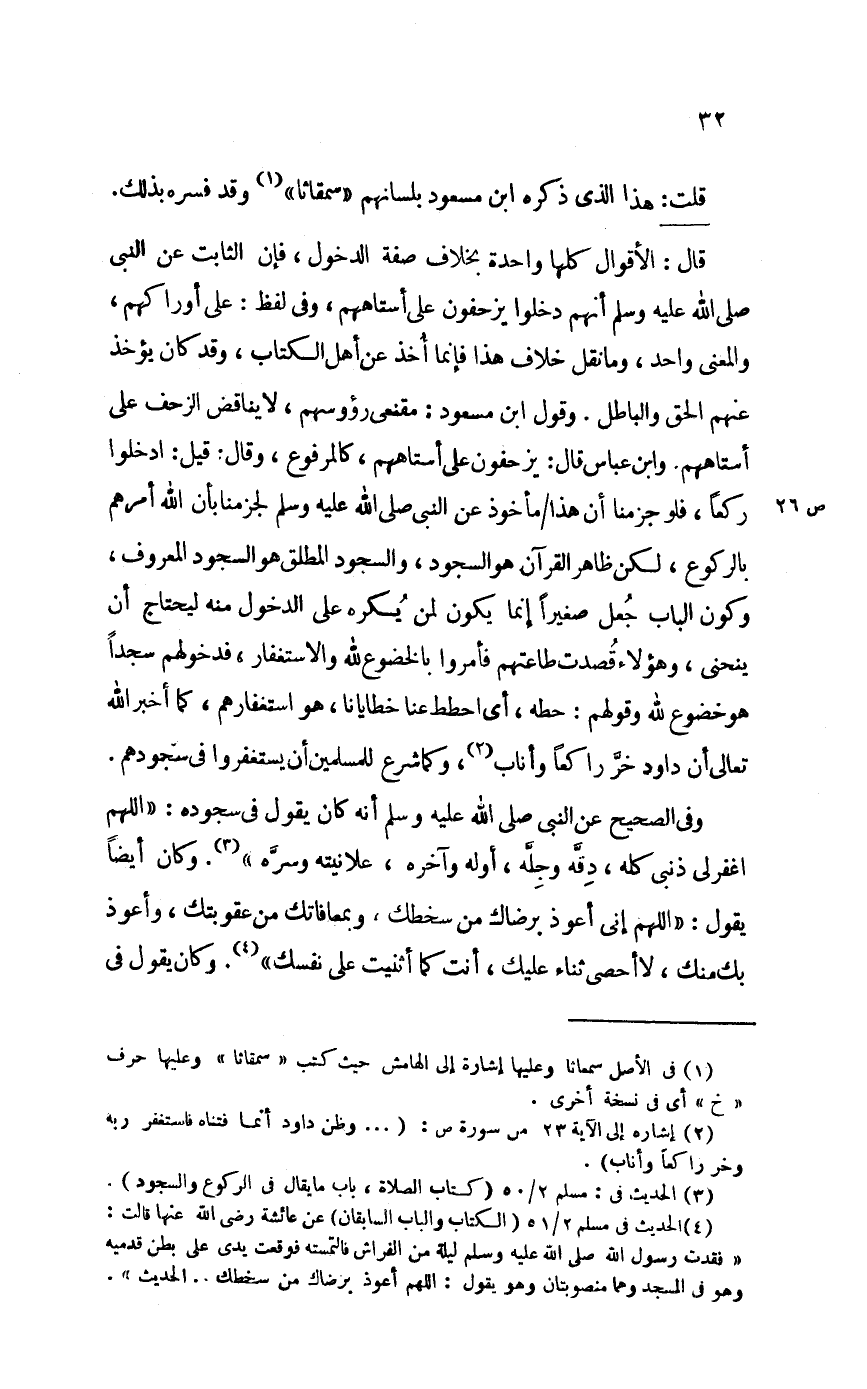 ٣٢
قلت: هذا الذى ذكره ابن مسعود بلسانهم «سمقاثا»(١) وقد فسره بذلك.
قال : الأقوال كلها واحدة بخلاف صفة الدخول ، فإن الثابت عن النبى
صلى الله عليه وسلم أنهم دخلوا يزحفون على أستاههم ، وفى لفظ : على أوراكهم ،
والمعنى واحد ، ومانقل خلاف هذا فإنما أُخذ عن أهل الكتاب ، وقد كان يؤخذ
عنهم الحق والباطل . وقول ابن مسعود : مقنعى رؤوسهم ، لا يناقض الزحف على
أستاههم. وابن عباس قال: يزحفون على أستاههم ، كالمرفوع ، وقال: قيل: ادخلوا
ركعاً ، فلو جزمنا أن هذا/مأخوذ عن النبى صلى الله عليه وسلم لجزمنا بأن الله أمرهم
ص ٢٦
بالركوع ، لكن ظاهر القرآن هو السجود ، والسجود المطلق هو السجود المعروف ،
وكون الباب جُعل صغيراً إنما يكون لمن يُكره على الدخول منه ليحتاج أن
ينحنى ، وهؤلاء قُصدت طاعتهم فأمروا بالخضوع لله والاستغفار ، فدخولهم سجداً
هو خضوع لله وقولهم : حطه ، أى احطط عنا خطايانا ، هو استغفارهم ، كما أخبر الله
تعالى أن داود خرَّ راكعاً وأناب(٢)، وكما شرع للمسلمين أن يستغفروا فى سجودهم .
وفى الصحيح عن النبى صلى الله عليه وسلم أنه كان يقول فى سجوده : «اللهم
اغفر لى ذنبى كله ، دِقَّه وجِلَّه ، أوله وآخره ، علانيته وسرَّه »(٣). وكان أيضاً
يقول : «اللهم إنى أعوذ برضاك من سخطك ، وبمعافاتك من عقوبتك ، وأعوذ
بك منك ، لا أحصى ثناء عليك ، أنت كما أثنيت على نفسك»(٤). وكان يقول فى
(١) فى الأصل سمعاثا وعليها إشارة إلى الهامش حيث كتب « سمقاثا » وعليها حرف
« خ » أى فى نسخة أخرى .
(٢) إشاره إلى الآية ٢٣ من سورة ص : ( ... وظن داود أنما فتناه فاستغفر ربه
وخر راكعاً وأناب) .
(٣) الحديث فى : مسلم ٥٠/٢ (كتاب الصلاة ، باب مايقال فى الركوع والسجود ) .
(٤)الحديث فى مسلم ٥١/٢ ( الكتاب والباب السابقان) عن عائشة رضى الله عنها قالت :
« فقدت رسول الله صلى الله عليه وسلم ليلة من الفراش فالتمسته فوقعت يدى على بطن قدميه
وهو فى المسجد وهما منصوبتان وهو يقول : اللهم أعوذ برضاك من سخطك .. الحديث » .